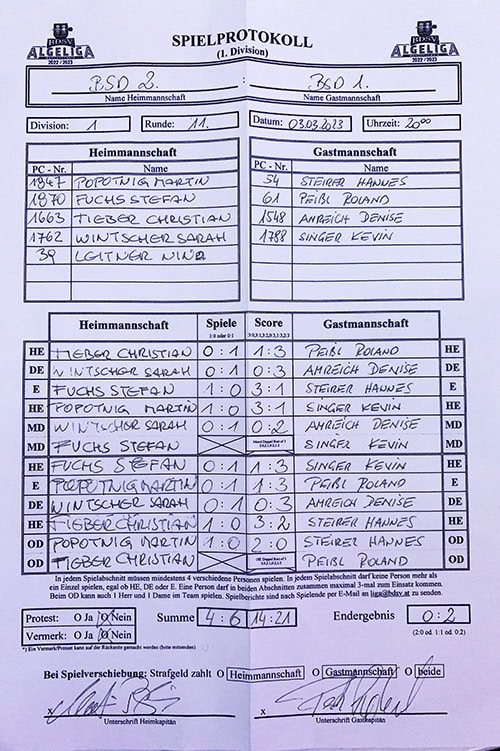 BDSV
ALGELIGA
2022 / 2023
SPIELPROTOKOLL
(1. Division)
BDSV
ALGELIGA
2022 / 2023
BSD 2. : BSD 1.
Name Heimmannschaft Name Gastmannschaft
Division: 1 Runde: 11. Datum: 03.03.2023 Uhrzeit: 20⁰⁰
Heimmannschaft Gastmannschaft
PC - Nr. Name PC - Nr. Name
1947 POPOTNIG MARTIN 54 STEIRER HANNES
1970 FUCHS STEFAN 61 PEIBL ROLAND
1663 TIEBER CHRISTIAN 1548 AHREICH DENISE
1762 WINTSCHER SARAH 1788 SINGER KEVIN
39 LEITNER NINA
Heimmannschaft Spiele Score Gastmannschaft
1:0 oder 0:1
HE TIEBER CHRISTIAN 0:1 1:3 PEIBL ROLAND HE
DE WINTSCHER SARAH 0:1 0:3 AHREICH DENISE DE
E FUCHS STEFAN 1:0 3:1 STEIRER HANNES E
HE POPOTNIG MARTIN 1:0 3:1 SINGER KEVIN HE
MD WINTSCHER SARAH 0:1 0:2 AHREICH DENISE MD
MD FUCHS STEFAN SINGER KEVIN MD
HE FUCHS STEFAN 0:1 1:3 SINGER KEVIN HE
E POPOTNIG MARTIN 0:1 1:3 PEIBL ROLAND E
DE WINTSCHER SARAH 0:1 0:3 AHREICH DENISE DE
HE TIEBER CHRISTIAN 1:0 3:2 STEIRER HANNES HE
OD POPOTNIG MARTIN 1:0 2:0 STEIRER HANNES OD
OD TIEBER CHRISTIAN PEIBL ROLAND OD
In jedem Spielabschnitt müssen mindestens 4 verschiedene Personen spielen. In jedem Spielabschnitt darf keine Person mehr als
ein Einzel spielen, egal ob HE, DE oder E. Eine Person darf in beiden Abschnitten zusammen maximal 3-mal zum Einsatz kommen.
Beim OD kann auch 1 Herr und 1 Dame im Team spielen. Spielberichte sind nach Spielende per E-Mail an liga@bdsv.at zu senden.
Protest: O Ja O Nein Summe 4:6 14:21 Endergebnis 0:2
Vermerk: O Ja O Nein (2:0 od. 1:1 od. 0:2)
*) Ein Vermerk/Protest kann auf der Rückseite gemacht werden (bzgl. inhaltl.)
Bei Spielverschiebung: Strafgeld zahlt O Heimmannschaft O Gastmannschaft O beide
x x
Unterschrift Heimkapitän Unterschrift Gastkapitän